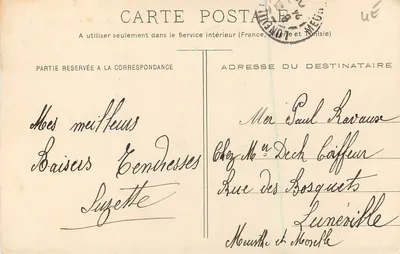 CARTE POSTALE
A utiliser seulement dans le Service intérieur (France, et Tunisie)
PARTIE RÉSERVÉE A LA CORRESPONDANCE
ADRESSE DU DESTINATAIRE
Mes meilleurs
Baisers Tendresses
Suzette
Mer Paul Ravaux
Chez Mr Deck Coiffeur
Rue des Bosquets
Lunéville
Meurthe et Moselle